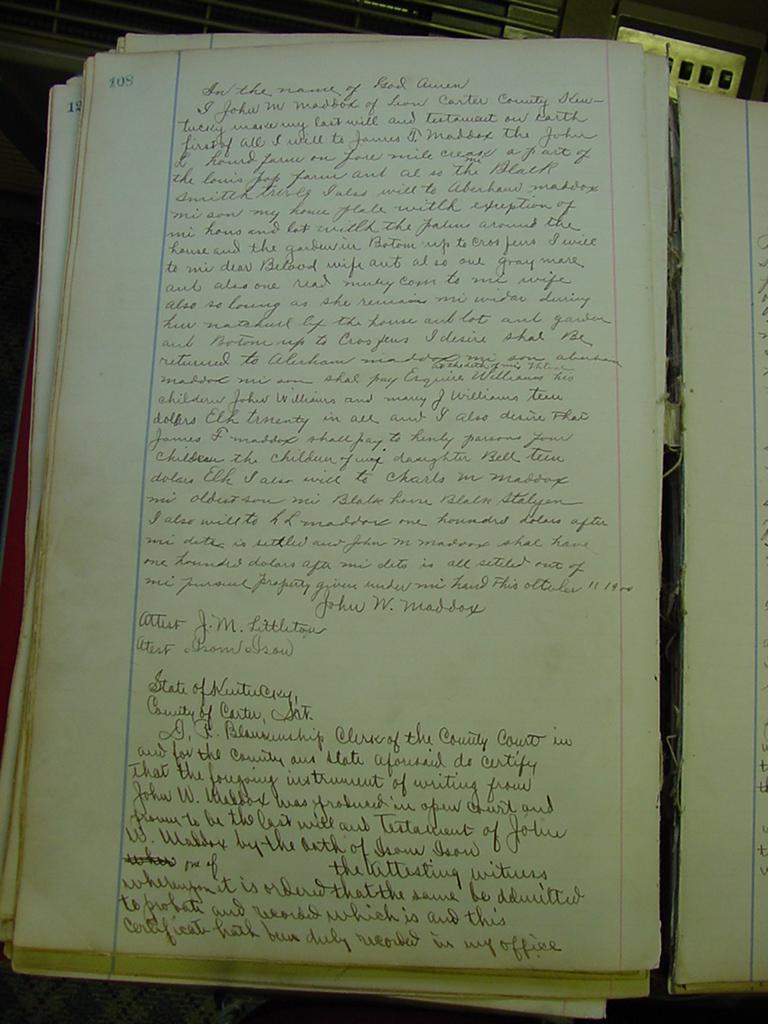 108
In the name of God Amen
I John W Maddox of Leon Carter County Ken-
tucky make my last will and testament on earth
first of all I will to James F. Maddox the John
L hourd farm on fore mile creak a part of
the louis farm and al so the Black
I also will to Aberham maddox
mi son my home plate with exeption of
mi hous and lot with the palens around the
house and the garden in Botom up to Cros fens I will
to mi dear Beloved wife and al so one gray mare
and also one read muley cow to mi wife
also so loung as she remains mi widow during
her naturell the house and lot and garden
and Botom up to Cros fens I desire shal Be
returned to Aberham maddox mi son aberham
at the deth of mi
maddox mi son shal pay Esquire Williams his
children John Williams and mary J Williams teen
dolars Eth twenty in all and I Also desire that
James F maddox shall pay to henly parsons four
children the children of my daughter Bell teen
dolars Eth I also will to Charls M Maddox
mi oldest son mi Black horse Black Stalyen
I also will to L L maddox one houndrd dolars after
mi dets is settled and John M maddox shal have
one hounded dolars after mi dets is all setled out of
mi pursnel property given under mi hand this october 11 1900
John W. Maddox
Attest J. M. Littleton
Atest Isom Ison
12
State of Kentucky,
County of Carter, Sct.
I, Blankenship Clerk of the County Court in
and for the county and state aforesaid do certify
that the foregoing instrument of writing from
John W. Maddox was produced in open court and
proven to be the last will and Testament of John
W. Maddox by the oath of Isom Ison
one of the attesting witness
whereupon it is ordered that the same be admitted
to probate and recorded which is and this
certificate hath been duly recorded in my office